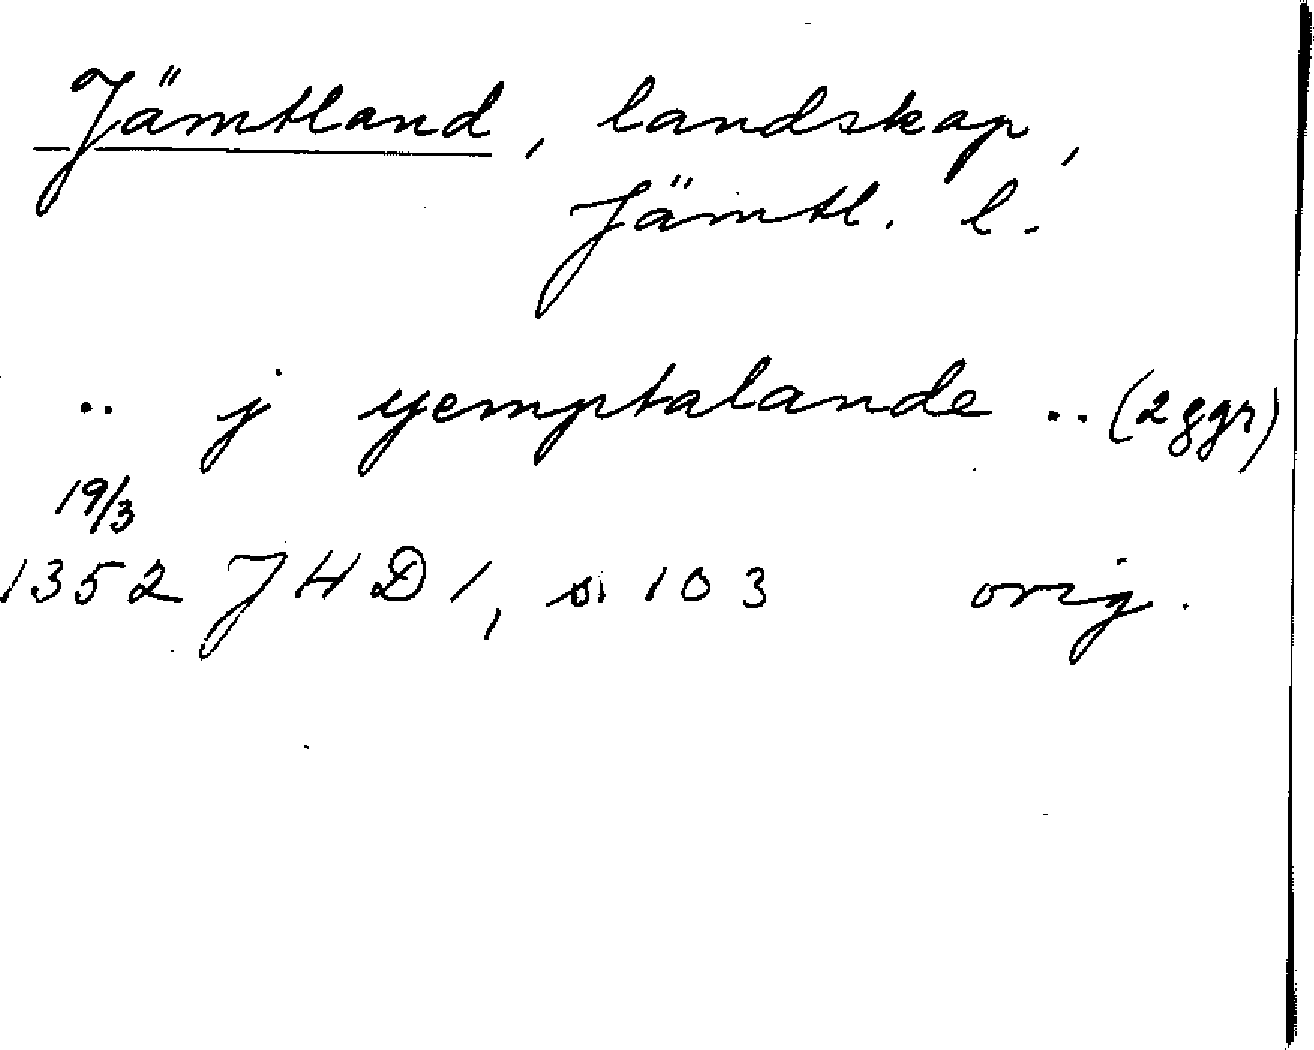 Jämtland, landskap,
Jämtl. l.
.. j yemptalande .. (2ggr)
19/3
1352 JHD 1, s. 103 orig.